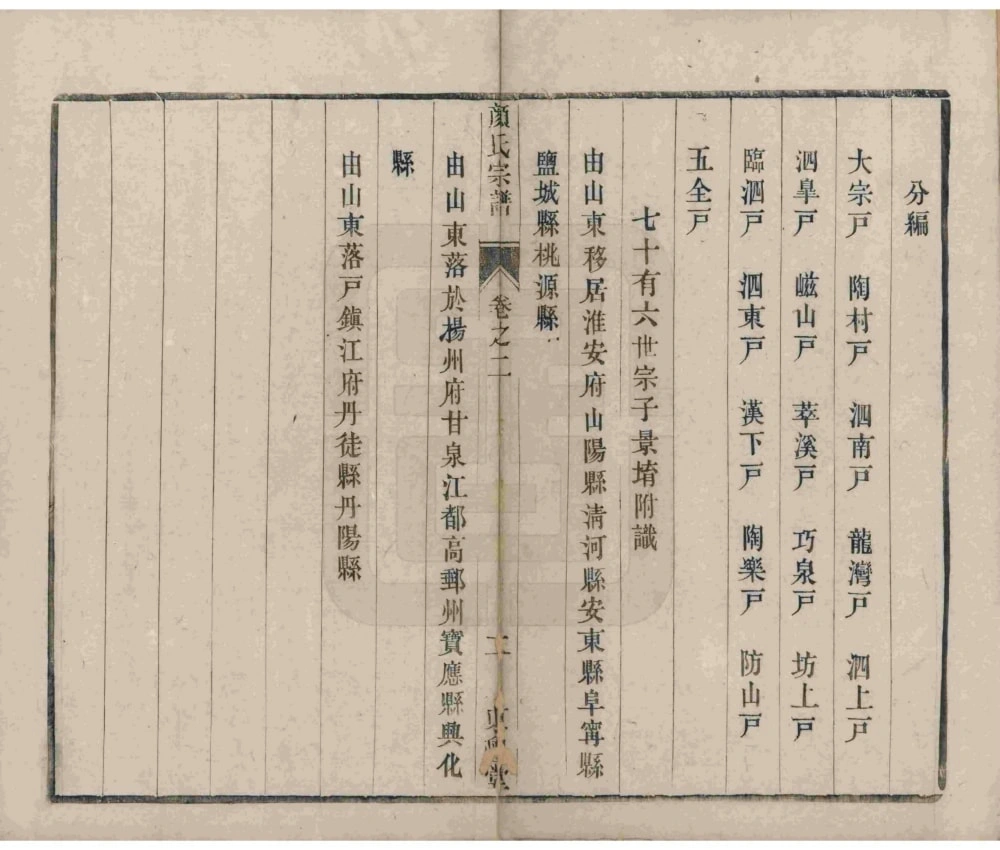 分編
大宗戸 陶村戸 泗南戸 龍灣戸 泗上戸
泗臯戸 嵫山戸 萃溪戸 巧泉戸 坊上戸
臨泗戸 泗東戸 漢下戸 陶樂戸 防山戸
五全戸
七十有六世宗子景堉附識
由山東移居淮安府山陽縣清河縣安東縣阜寧縣
鹽城縣桃源縣
顏氏宗譜 卷之二
由山東落於揚州府甘泉江都高郵州寶應縣興化
縣
由山東落戸鎮江府丹徒縣丹陽縣